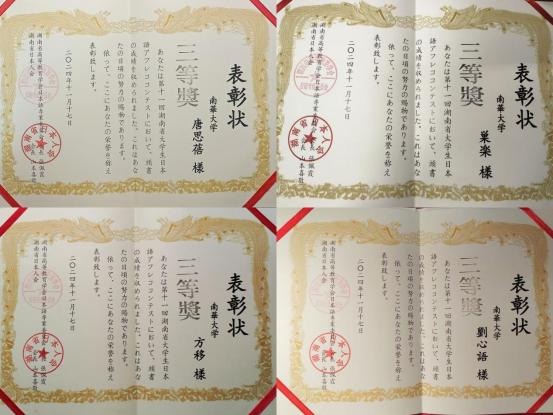 表彰状
南華大学
唐思蓓 様
三等獎
あなたは第十一回湖南省大学生日本
語アフレココンテストにおいて、頭書
の成績を収められました。これはあな
たの日頃の努力の賜物であります。
依って、ここにあなたの栄誉を称え
表彰致します。
二〇二四年十一月十七日
湖南省高等教育学会日本語専業
湖南省日本人会
表彰状
南華大学
巣楽 様
三等獎
あなたは第十一回湖南省大学生日本
語アフレココンテストにおいて、頭書
の成績を収められました。これはあな
たの日頃の努力の賜物であります。
依って、ここにあなたの栄誉を称え
表彰致します。
二〇二四年十一月十七日
湖南省高等教育学会日本語専業
湖南省日本人会
表彰状
南華大学
方移 様
三等獎
あなたは第十一回湖南省大学生日本
語アフレココンテストにおいて、頭書
の成績を収められました。これはあな
たの日頃の努力の賜物であります。
依って、ここにあなたの栄誉を称え
表彰致します。
二〇二四年十一月十七日
湖南省高等教育学会日本語専業
湖南省日本人会
表彰状
南華大学
劉心語 様
三等獎
あなたは第十一回湖南省大学生日本
語アフレココンテストにおいて、頭書
の成績を収められました。これはあな
たの日頃の努力の賜物であります。
依って、ここにあなたの栄誉を称え
表彰致します。
二〇二四年十一月十七日
湖南省高等教育学会日本語専業
湖南省日本人会